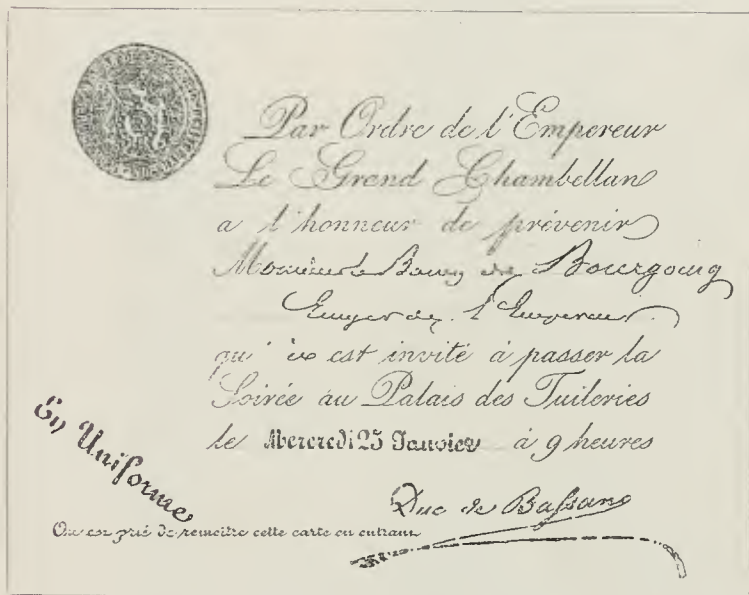 Par Ordre de l'Empereur
Le Grand Chambellan
a l'honneur de prévenir
Monsieur le Baron de Bourgoing
Ecuyer de l'Empereur
qu'il est invité à passer la
Soirée au Palais des Tuileries
le Mercredi 25 Janvier à 9 heures
En Uniforme
Duc de Bassano
On est prié de remettre cette carte en entrant